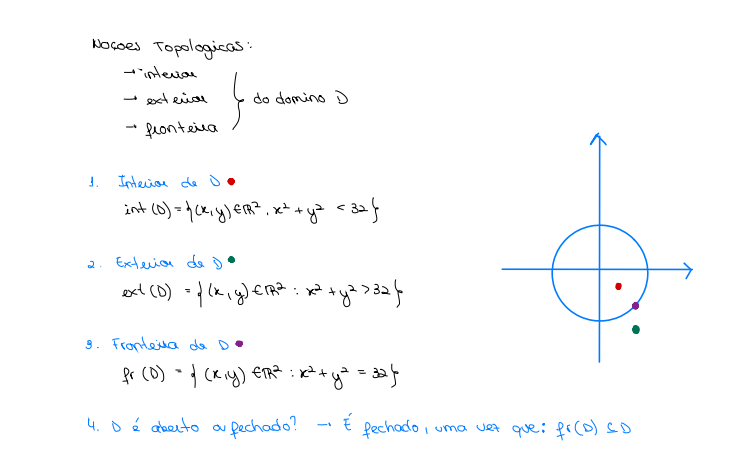 Noçoes Topologicas:
→ interior
→ exterior
→ fronteira
do domino D
1. Interior de D
int (D) = {(x,y) ∈ ℝ², x² + y² < 32}
2. Exterior de D
ext (D) = {(x,y) ∈ ℝ² : x² + y² > 32}
3. Fronteira de D
fr (D) = {(x,y) ∈ ℝ² : x² + y² = 32}
4. D é aberto ou fechado? → É fechado, uma vez que: fr(D) ⊆ D